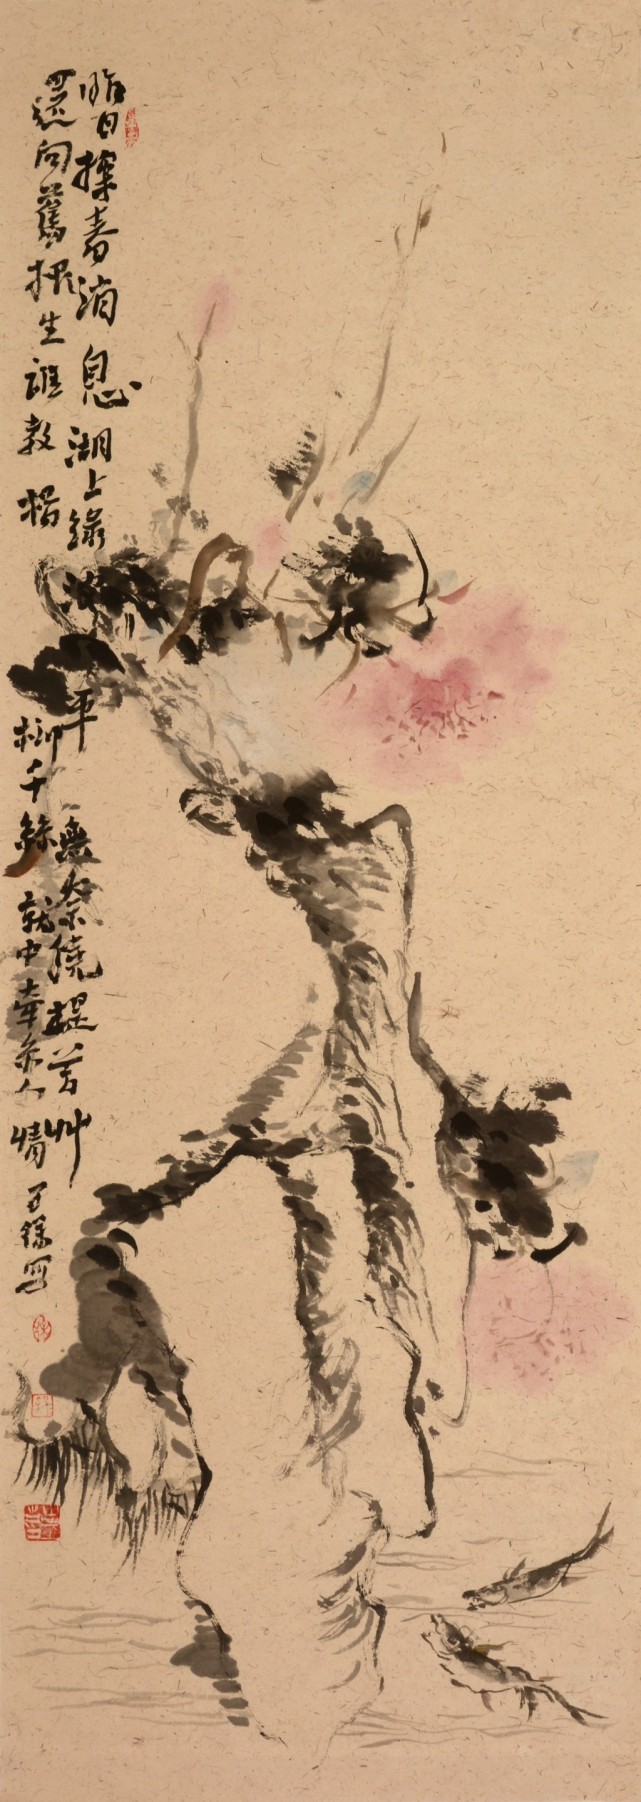 昨日探春消息湖上綠波平無奈繞堤芳艸
還向舊根生誰教楊柳千絲就中牽系人情